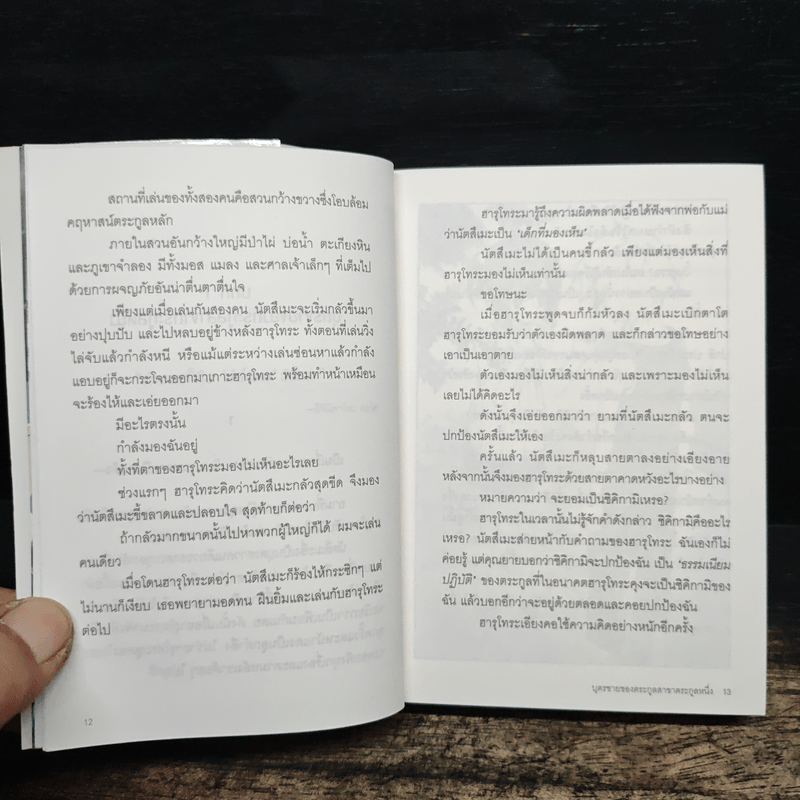 สถานที่เล่นของทั้งสองคนคือสวนกว้างขวางซึ่งโอบล้อม
คฤหาสน์ตระกูลหลัก
ภายในสวนอันกว้างใหญ่มีป่าไผ่ บ่อน้ำ ตะเกียงหิน
และภูเขาจำลอง มีทั้งมอส แมลง และศาลเจ้าเล็กๆ ที่เต็มไป
ด้วยการผจญภัยอันน่าตื่นตาตื่นใจ
เพียงแต่เมื่อเล่นกันสองคน นัตสึเมะจะเริ่มกลัวขึ้นมา
อย่างปุบปับ และไปหลบอยู่ข้างหลังฮารุโทระ ทั้งตอนที่เล่นวิ่ง
ไล่จับแล้วกำลังหนี หรือแม้แต่ระหว่างเล่นซ่อนหาแล้วกำลัง
แอบอยู่ก็จะกระโจนออกมาเกาะฮารุโทระ พร้อมทำหน้าเหมือน
จะร้องไห้และเอ่ยออกมา
มีอะไรตรงนั้น
กำลังมองฉันอยู่
ทั้งที่ตาของฮารุโทระมองไม่เห็นอะไรเลย
ช่วงแรกๆ ฮารุโทระคิดว่านัตสึเมะกลัวสุดขีด จึงมอง
ว่านัตสึเมะขี้ขลาดและปลอบใจ สุดท้ายก็ต่อว่า
ถ้ากลัวมากขนาดนั้นไปหาพวกผู้ใหญ่ก็ได้ ผมจะเล่น
คนเดียว
เมื่อโดนฮารุโทระต่อว่า นัตสึเมะก็ร้องไห้กระซิกๆ แต่
ไม่นานก็เงียบ เธอพยายามอดทน ฝืนยิ้มและเล่นกับฮารุโทระ
ต่อไป
12
ฮารุโทระมารู้ถึงความผิดพลาดเมื่อได้ฟังจากพ่อกับแม่
ว่านัตสึเมะเป็น 'เด็กที่มองเห็น'
นัตสึเมะไม่ได้เป็นคนขี้กลัว เพียงแต่มองเห็นสิ่งที่
ฮารุโทระมองไม่เห็นเท่านั้น
ขอโทษนะ
เมื่อฮารุโทระพูดจบก็ก้มหัวลง นัตสึเมะเบิกตาโต
ฮารุโทระยอมรับว่าตัวเองผิดพลาด และก็กล่าวขอโทษอย่าง
เอาเป็นเอาตาย
ตัวเองมองไม่เห็นสิ่งน่ากลัว และเพราะมองไม่เห็น
เลยไม่ได้คิดอะไร
ดังนั้นจึงเอ่ยออกมาว่า ยามที่นัตสึเมะกลัว ตนจะ
ปกป้องนัตสึเมะให้เอง
ครั้นแล้ว นัตสึเมะก็หลุบสายตาลงอย่างเอียงอาย
หลังจากนั้นจึงมองฮารุโทระด้วยสายตาคาดหวังอะไรบางอย่าง
หมายความว่า จะยอมเป็นชิคิกามิเหรอ?
ฮารุโทระในเวลานั้นไม่รู้จักคำดังกล่าว ชิคิกามิคืออะไร
เหรอ? นัตสึเมะส่ายหน้ากับคำถามของฮารุโทระ ฉันเองก็ไม่
ค่อยรู้ แต่คุณยายบอกว่าชิคิกามิจะปกป้องฉัน เป็น 'ธรรมเนียม
ปฏิบัติ' ของตระกูลที่ในอนาคตฮารุโทระคุงจะเป็นชิคิกามิของ
ฉัน แล้วบอกอีกว่าจะอยู่ด้วยตลอดและคอยปกป้องฉัน
ฮารุโทระเอียงคอใช้ความคิดอย่างหนักอีกครั้ง
บุตรชายของตระกูลสาขาตระกูลหนึ่ง 13